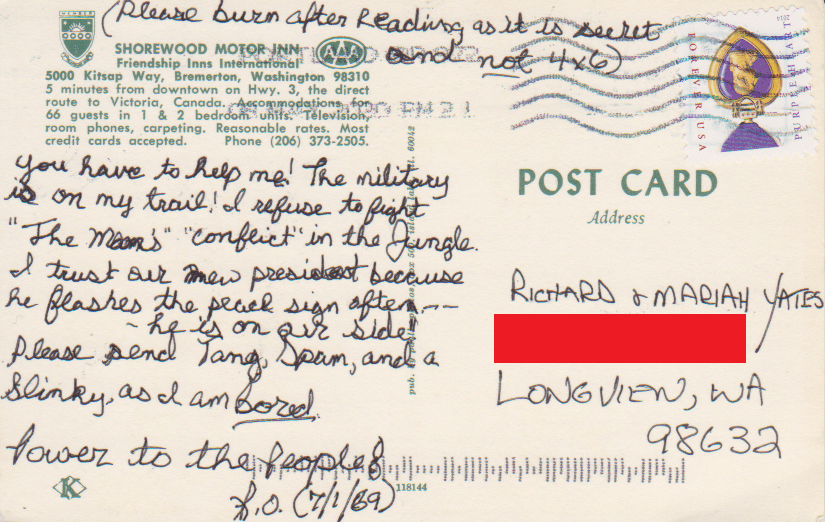 (Please burn after Reading as it is secret
and not 4x6)
SHOREWOOD MOTOR INN
Friendship Inns International
5000 Kitsap Way, Bremerton, Washington 98310
5 minutes from downtown on Hwy. 3, the direct
route to Victoria, Canada. Accommodations for
66 guests in 1 & 2 bedroom units. Television,
room phones, carpeting. Reasonable rates. Most
credit cards accepted. Phone (206) 373-2505.
AAA
2014
FOREVER USA
PURPLE HEART
You have to help me! The military
is on my trail! I refuse to fight
"The Man's" "conflict" in the Jungle.
I trust our new president because
he flashes the peace sign often --
- he is on our side"
Please send Tang, Spam, and a
Slinky, as I am bored.
Power to the People!
(7/1/69)
POST CARD
Address
RICHARD & MARIAH YATES
LONGVIEW, WA
98632
K
118144